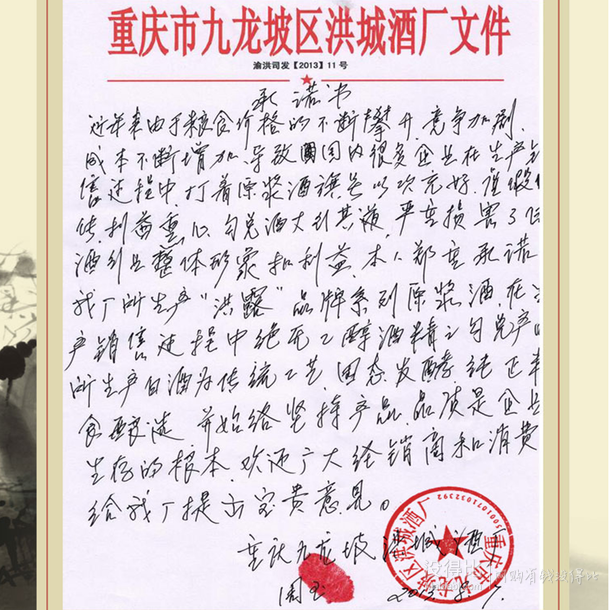 重庆市九龙坡区洪城酒厂文件
渝洪司发【2013】11号
承诺书
近年来由于粮食价格的不断攀升,竞争加剧,
成本不断增加,导致国内很多企业在生产销
售过程中,打着原浆酒旗号以次充好,虚假
传,利益重心,勾兑酒大行其道,严重损害了
酒行业整体形象和利益,本人郑重承诺
我厂所生产“洪露”品牌系列原浆酒,在
产销售过程中绝无乙醇酒精之勾兑产
所生产白酒为传统工艺,固态发酵纯正
食酿造,并始终坚持产品品质是企业
生存的根本,欢迎广大经销商和消费
给我厂提出宝贵意见。
重庆九龙坡洪城酒
周
2013.
重庆市九龙坡区洪城酒厂
5001071032392